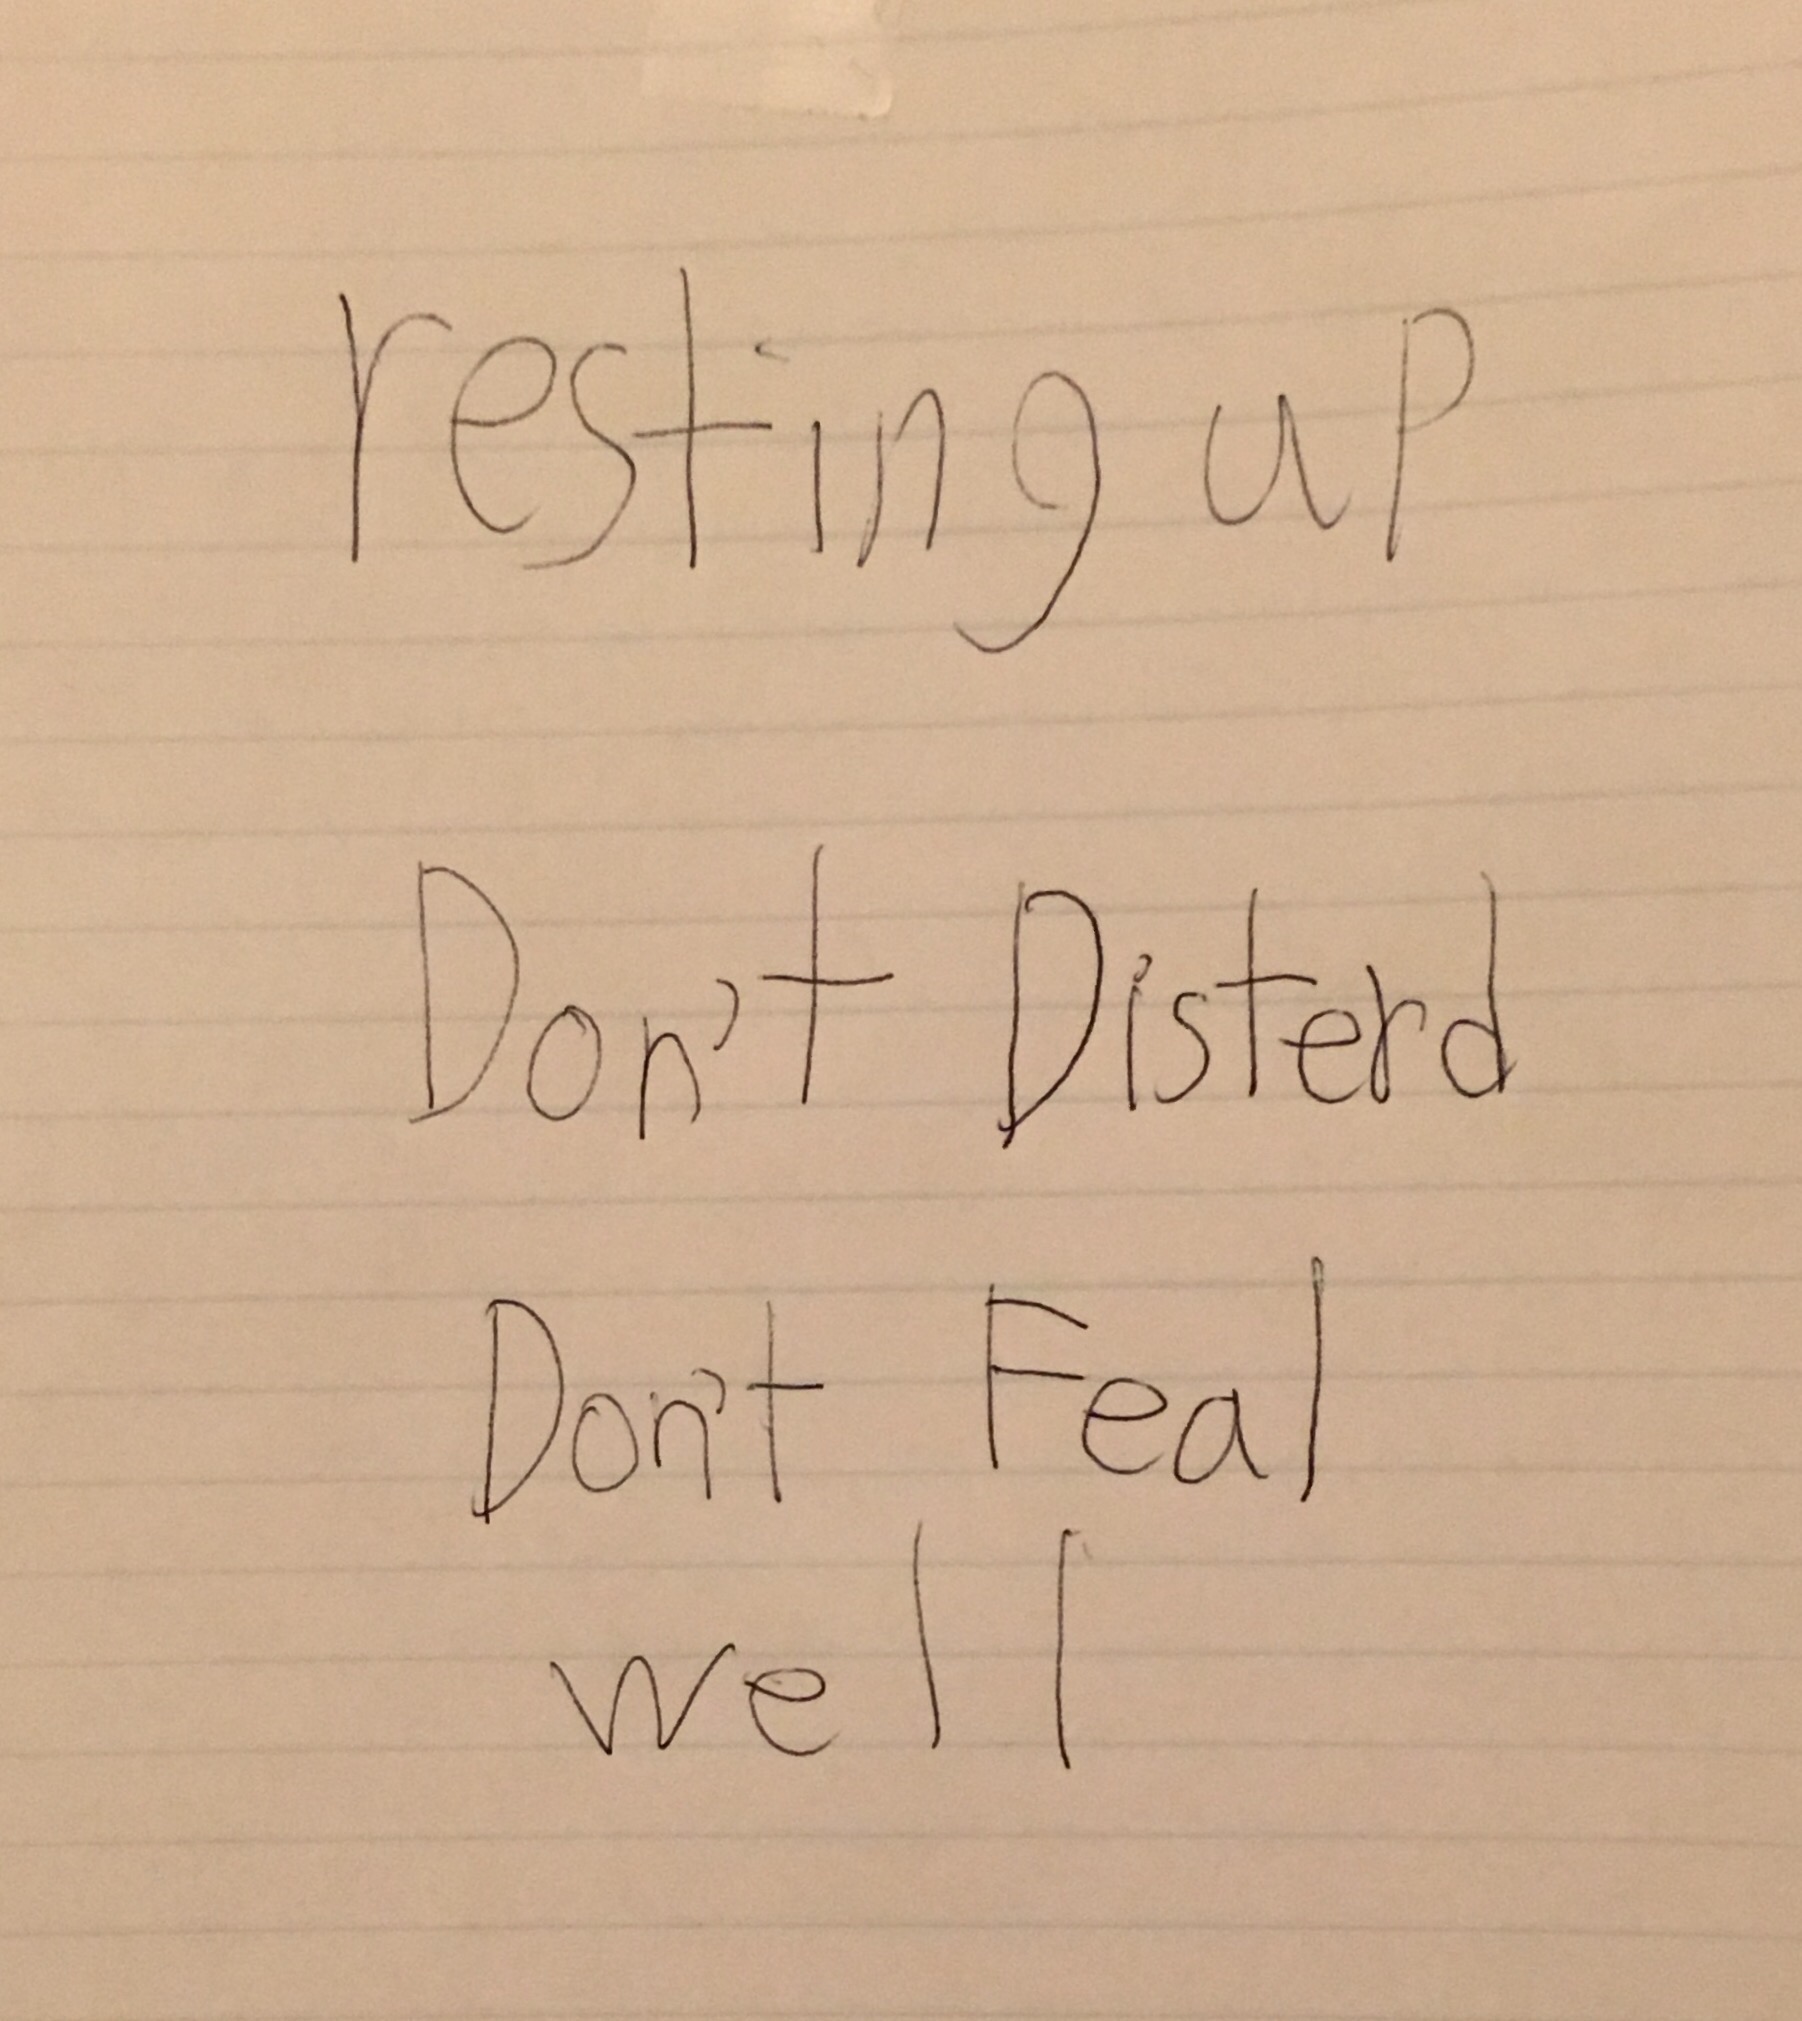 resting up
Don't Disterd
Don't Feal
well